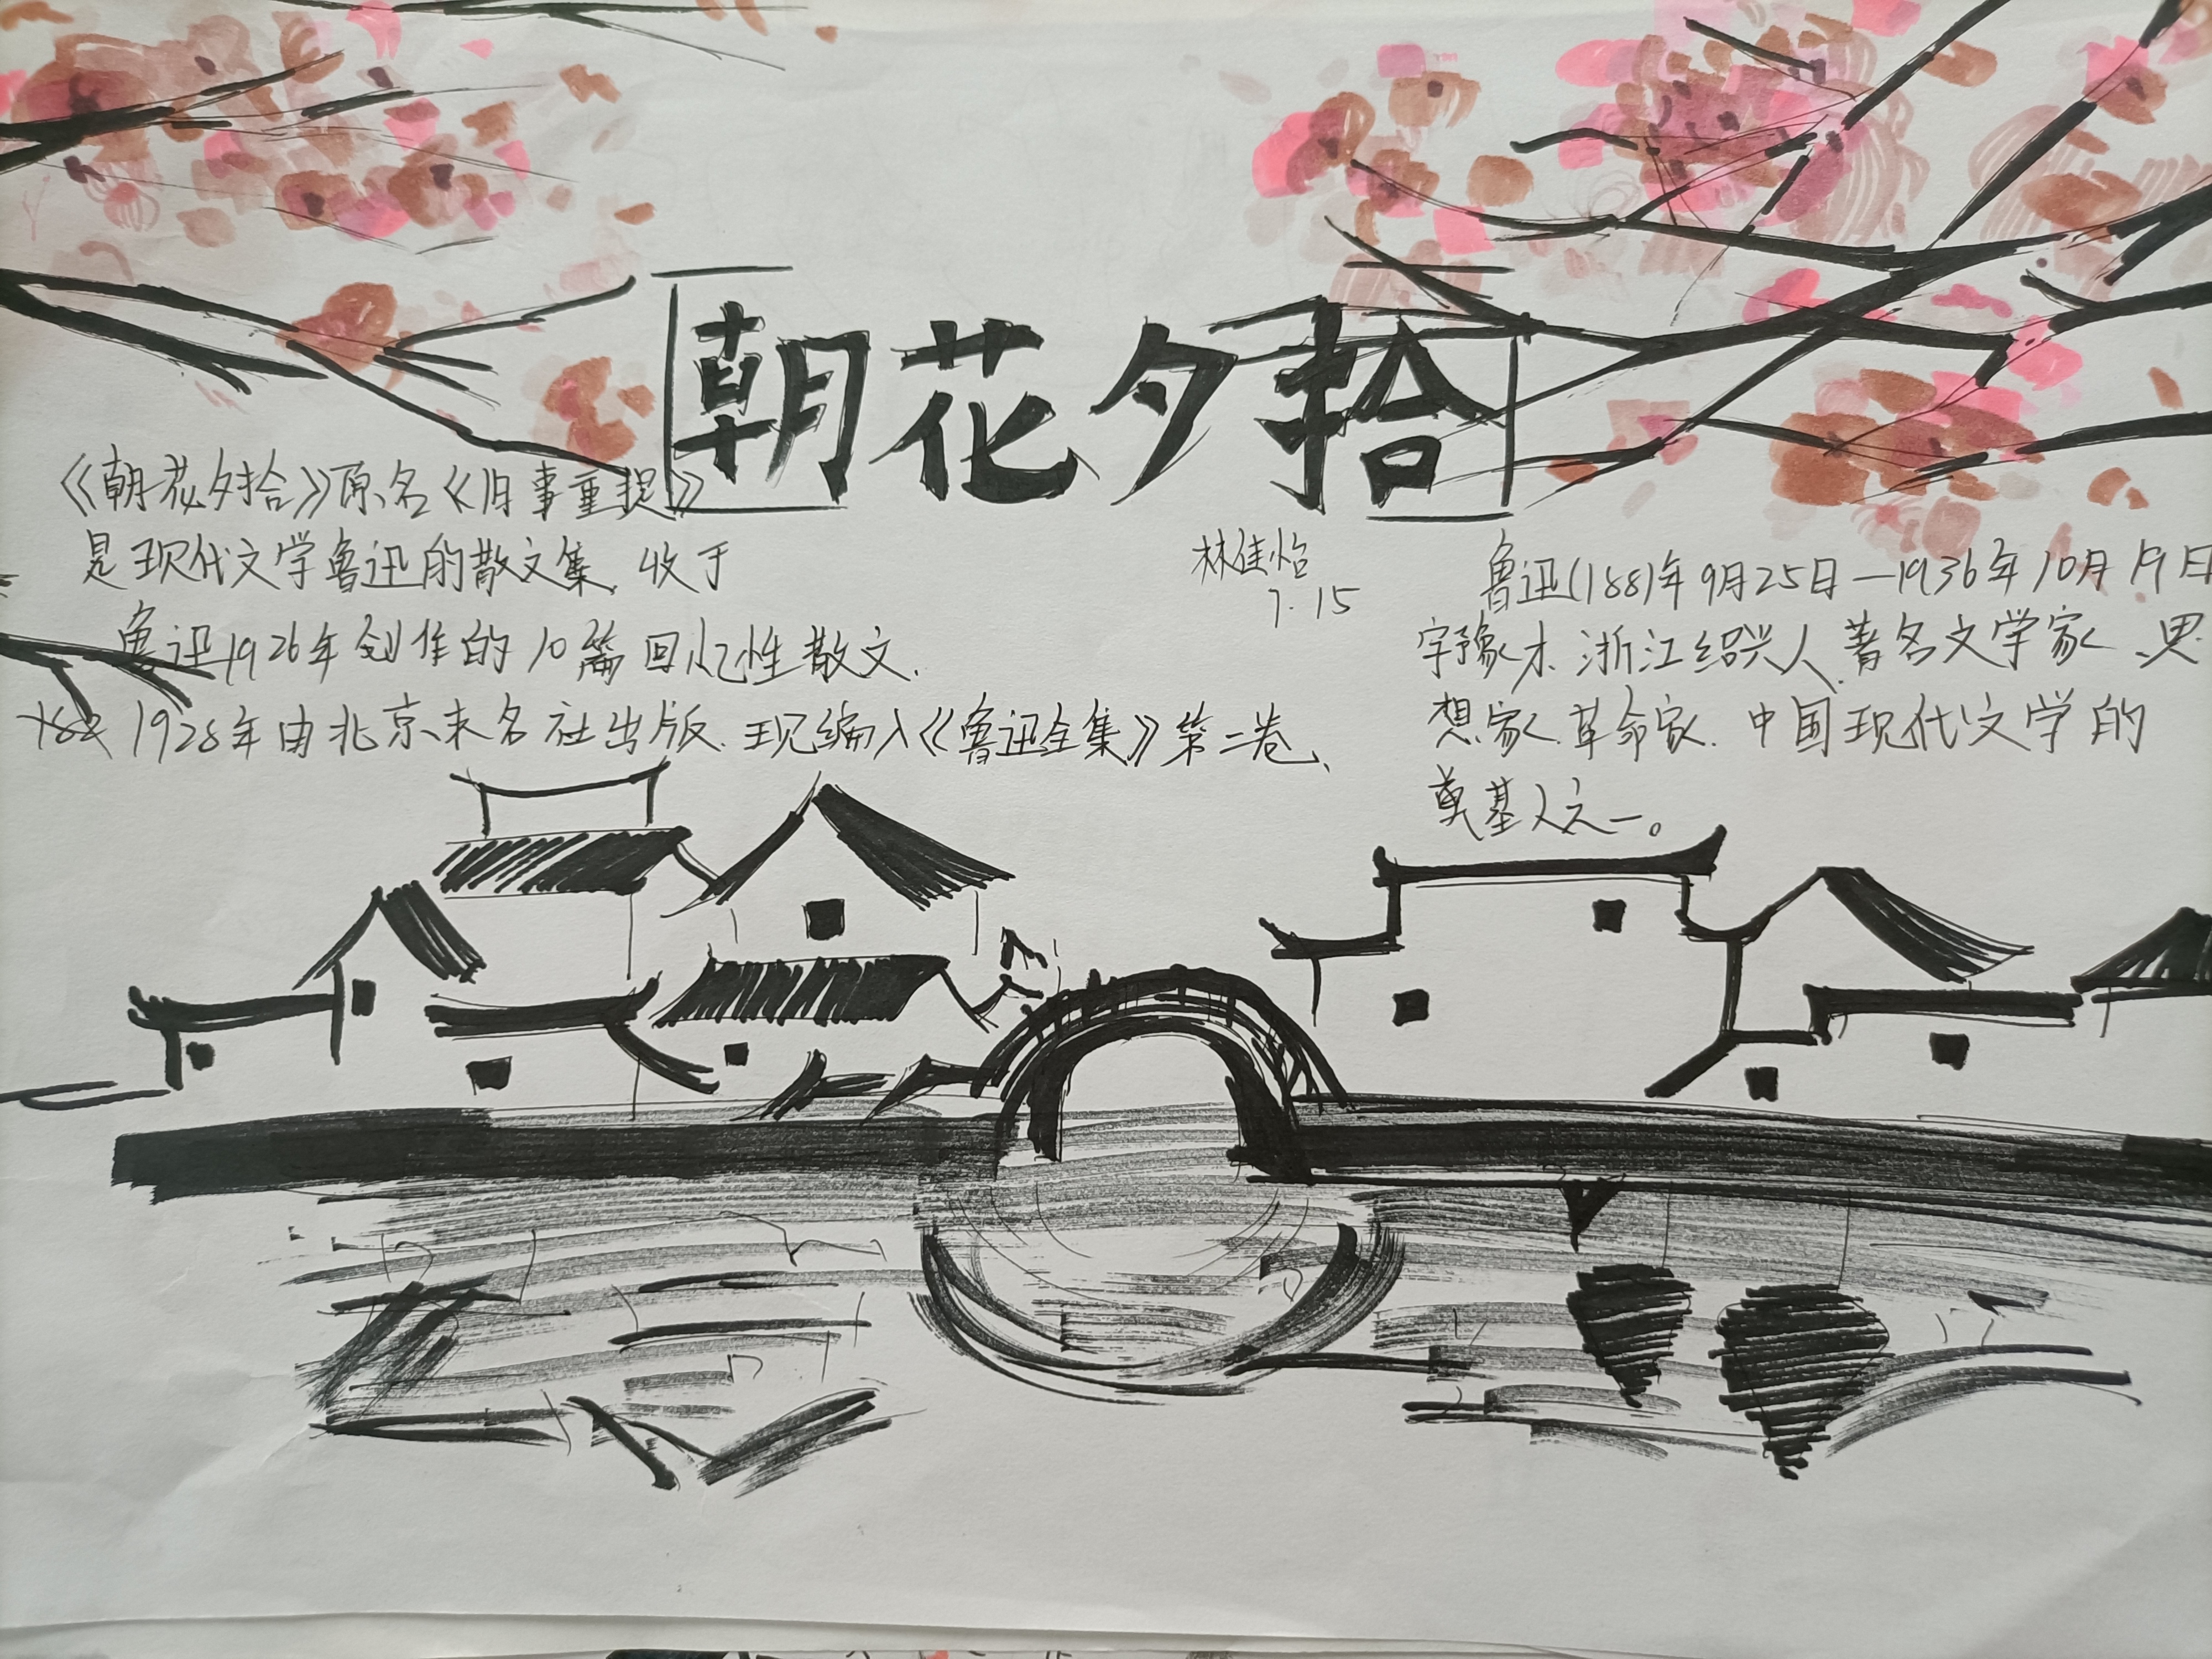 朝花夕拾
《朝花夕拾》原名《旧事重提》
是现代文学鲁迅的散文集、收于
鲁迅1926年创作的10篇回忆性散文.
1928年由北京未名社出版.现编入《鲁迅全集》第二卷、
林佳怡
7.15
鲁迅(1881年9月25日—1936年10月19日
字豫才.浙江绍兴人.著名文学家、思
想家.革命家.中国现代文学的
奠基人之一。